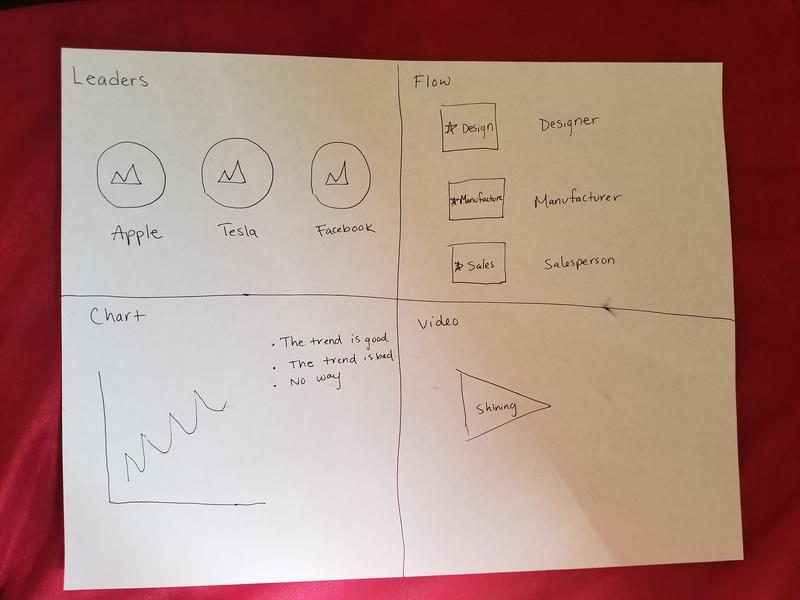 Leaders
Apple
Tesla
Facebook
Flow
Design
Designer
Manufacture
Manufacturer
Sales
Salesperson
Chart
• The trend is good
• The trend is bad
• No way
Video
Shining